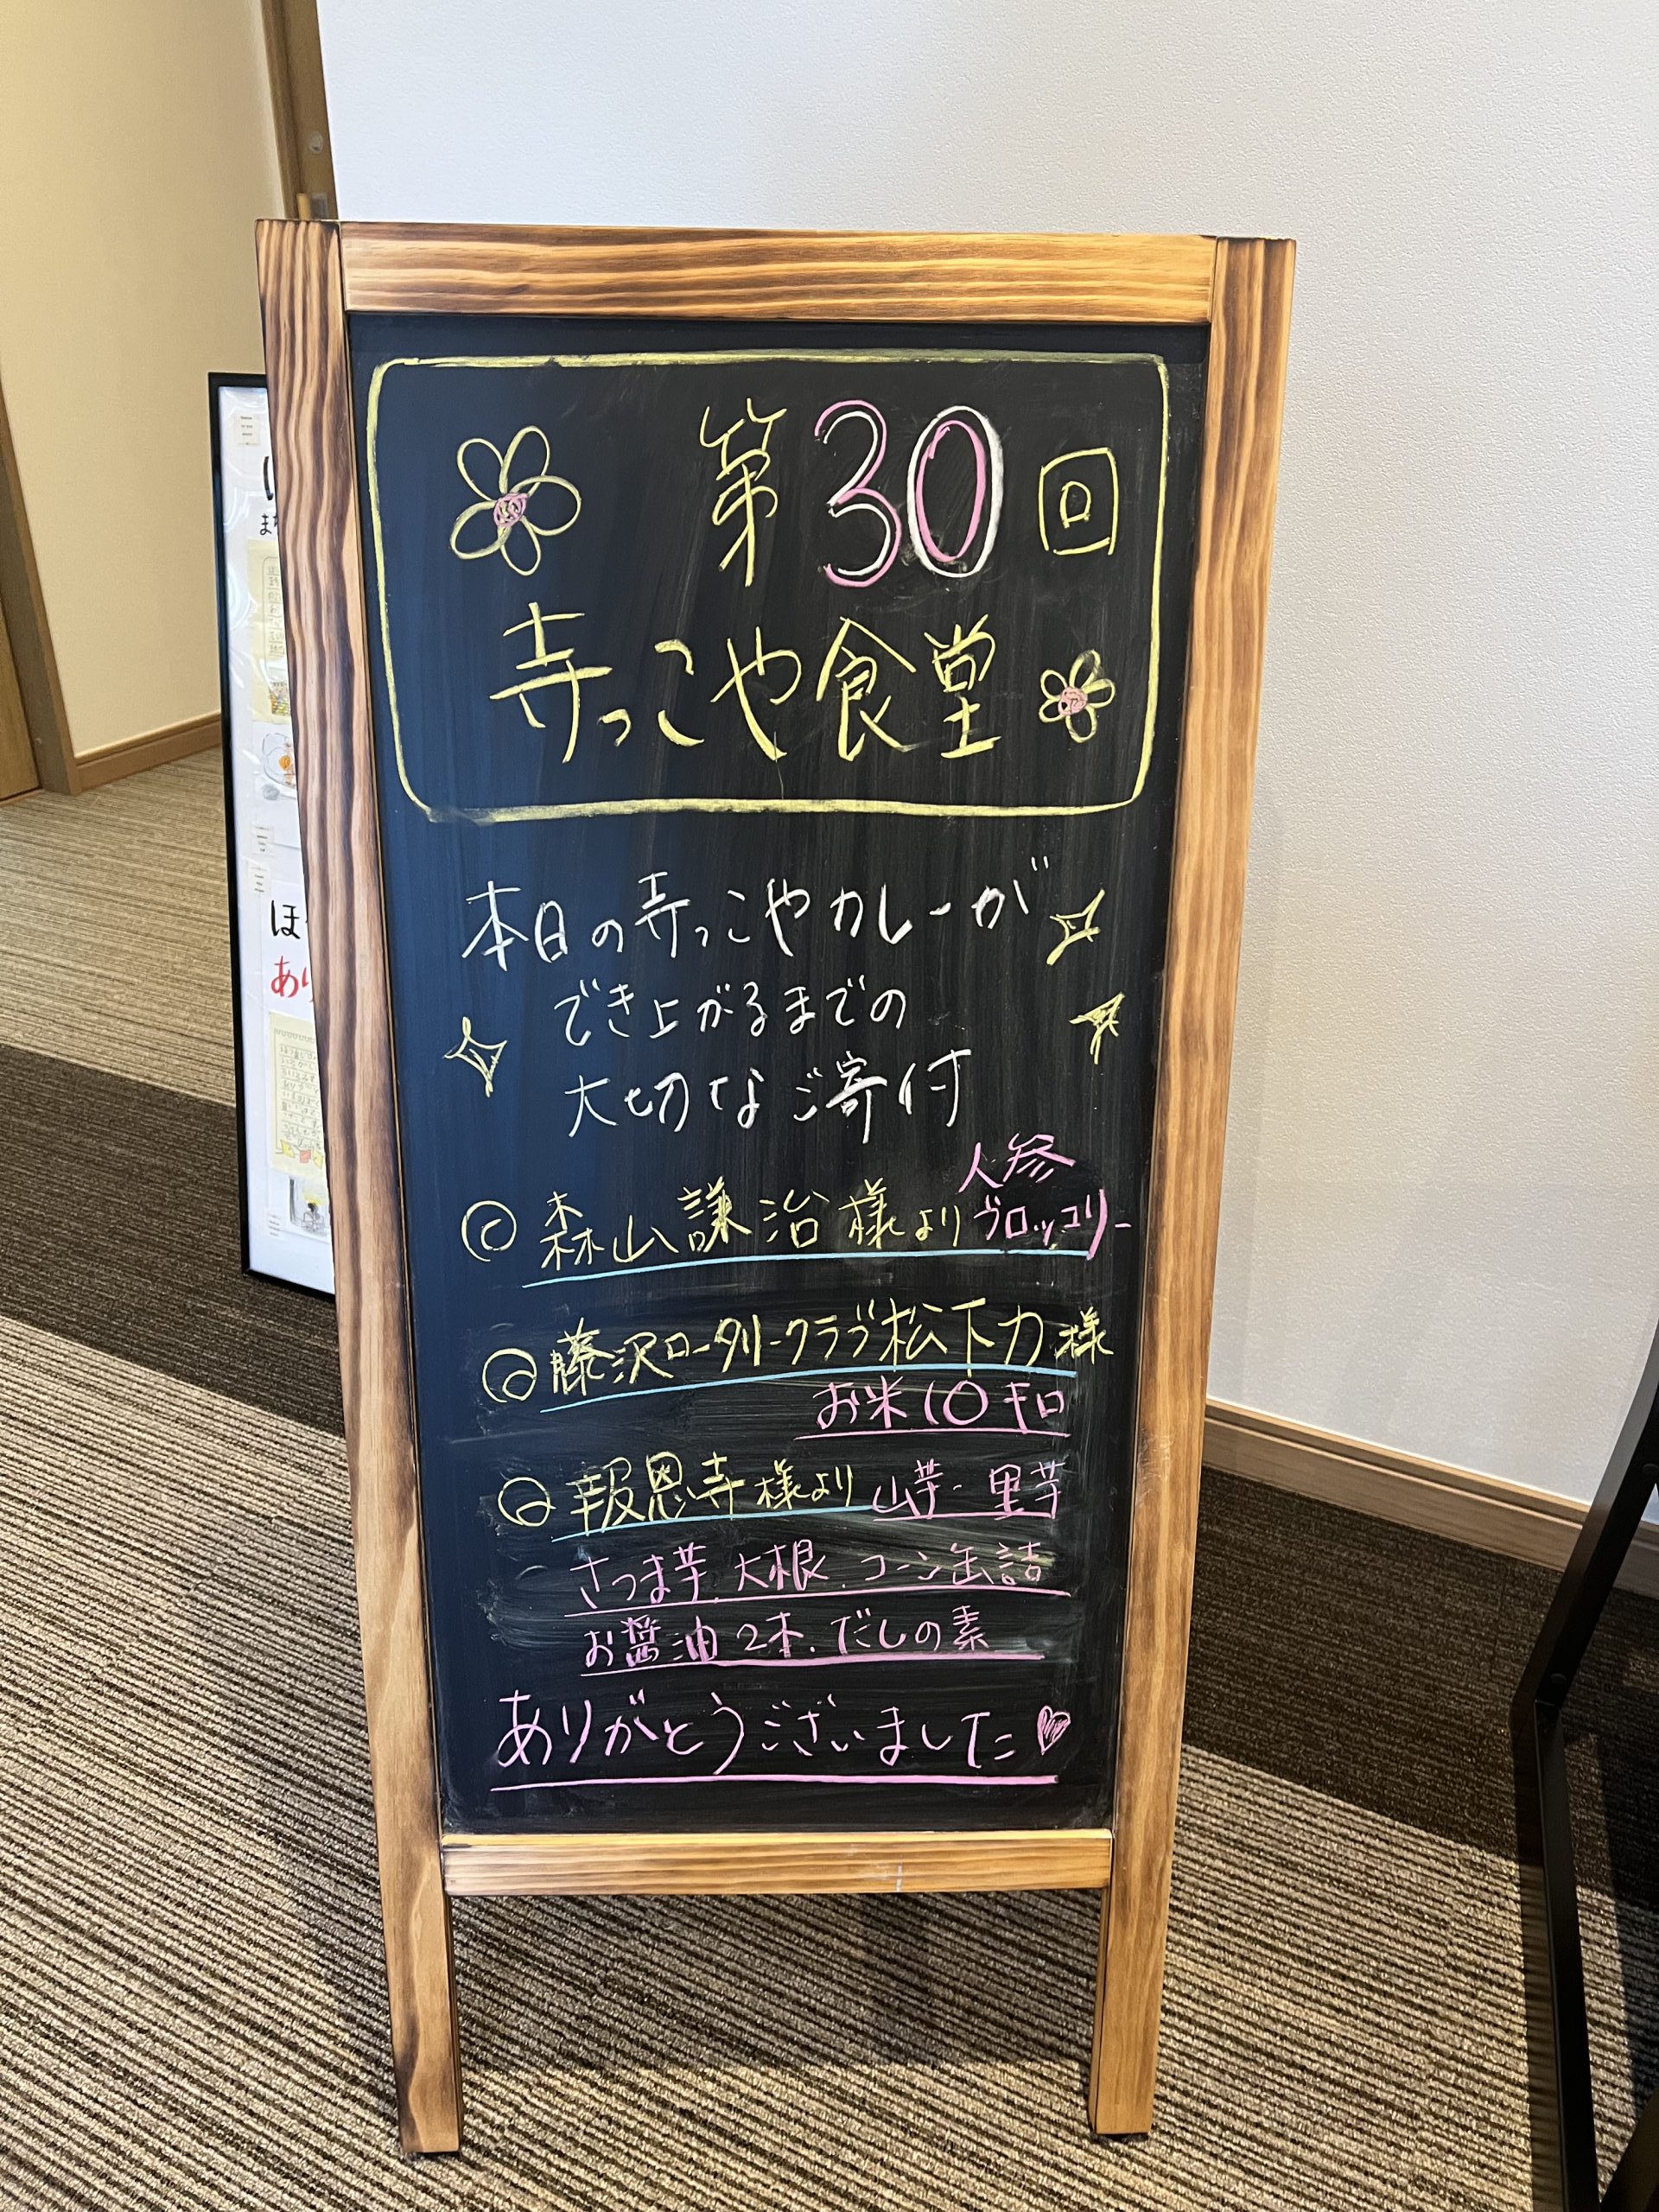 第30回
寺っこや食堂
本日の寺っこやカレーが
でき上がるまでの
大切なご寄付
人参
◎森山謙治様よりブロッコリー
◎藤沢ロータリークラブ松下力様
お米10キロ
◎報恩寺様より山芋・里芋
さつま芋.大根.コーン缶詰
お醤油2本.だしの素
ありがとうございました♡